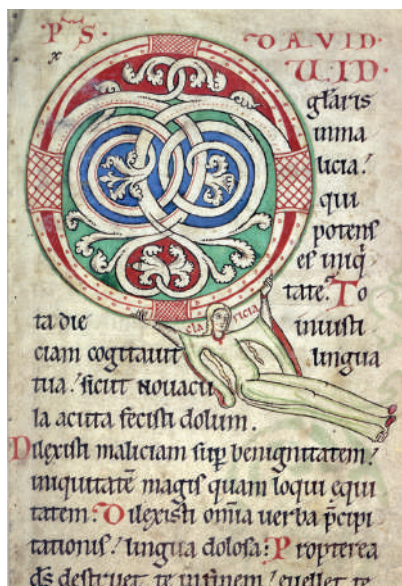 PS. DAVID.
x UID.
gl̃aris
inma
licia!
qui
potens
es iniq̇
tate. To
ta die iniusti
cla ricia
ciam cogitauit lingua
tua! sicut nouacu
la acuta fecisti dolum.
Dilexisti maliciam sup̱ benignitatem!
iniquitatē magis quam loqui equi
tatem. Dilexisti om̄ia uerba p̄cipi
tationis! lingua dolosa: Propterea
d̄s destruet te in finem! euellet te